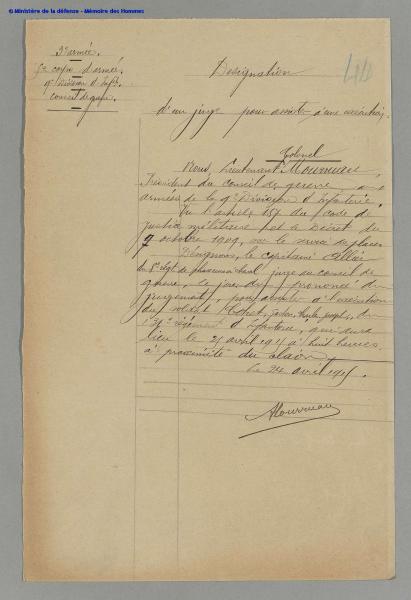 © Ministère de la défense - Mémoire des Hommes
3e armée.
5e corps d'armée.
9e Division d'Infie.
Conseil de guerre.
Désignation
d'un juge pour assister à une exécution.
Colonel
Nous, Lieutenant Mourruau,
Président du Conseil de guerre aux
armées de la 9e Division d'Infanterie.
Vu l'article 157 du Code de
justice militaire et le Décret du
7 octobre 1909, sur le service de place
Désignons, le capitaine
du 8e régt de juge au conseil de
guerre, le jour du prononcé du
jugement, pour assister à l'exécution
du soldat joseph, du
régiment d'Infanterie, qui aura
lieu le 25 avril 1915 à huit heures
à proximité du Claon.
Le 24 avril 1915.
Mourruau